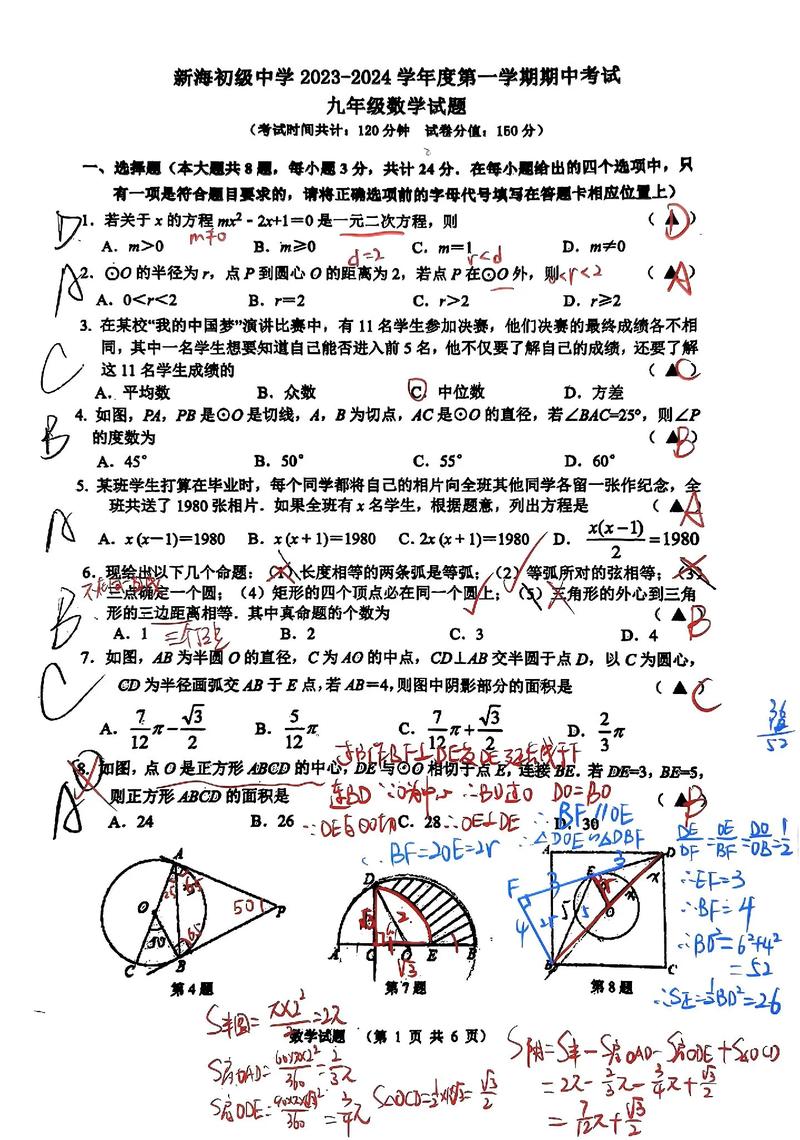 新海初级中学 2023-2024 学年度第一学期期中考试
九年级数学试题
（考试时间共计：120 分钟 试卷分值：150 分）
一、选择题（本大题共 8 题，每小题 3 分，共计 24 分．在每小题给出的四个选项中，只
有一项是符合题目要求的，请将正确选项前的字母代号填写在答题卡相应位置上）
D 1．若关于 x 的方程 mx²﹣2x+1＝0 是一元二次方程，则 （ ▲ ） D
m≠0
A．m＞0 B．m≥0 C．m＝1 D．m≠0
d=2 r<d
A 2．⊙O 的半径为 r，点 P 到圆心 O 的距离为 2，若点 P 在⊙O 外，则 0<r<2 （ ▲ ） A
A．0＜r＜2 B．r＝2 C．r＞2 D．r≥2
C 3. 在某校“我的中国梦”演讲比赛中，有 11 名学生参加决赛，他们决赛的最终成绩各不相
同，其中一名学生想要知道自己能否进入前 5 名，他不仅要了解自己的成绩，还要了解
这 11 名学生成绩的 （ ▲ ） C
A．平均数 B．众数 C．中位数 D．方差
B 4. 如图，PA，PB 是⊙O 是切线，A，B 为切点，AC 是⊙O 的直径，若∠BAC=25°，则∠P
的度数为 （ ▲ ） B
A．45° B．50° C．55° D．60°
5．某班学生打算在毕业时，每个同学都将自己的相片向全班其他同学各留一张作纪念，全
班共送了 1980 张相片．如果全班有 x 名学生，根据题意，列出方程是 （ ▲ ） A
A A．x (x－1)＝1980 B．x (x＋1)＝1980 C. 2x (x＋1)＝1980 D． x(x−1)/2 =1980
6．现给出以下几个命题：（1）长度相等的两条弧是等弧；（2）等弧所对的弦相等；（3）
三点确定一个圆；（4）矩形的四个顶点必在同一个圆上；（5）三角形的外心到三角
B 形的三边距离相等．其中真命题的个数为 （ ▲ ） B
A．1 B．2 C．3 D．4
三个顶点
7．如图，AB 为半圆 O 的直径，C 为 AO 的中点，CD⊥AB 交半圆于点 D，以 C 为圆心，
C CD 为半径画弧交 AB 于 E 点，若 AB＝4，则图中阴影部分的面积是 （ ▲ ） C
A． 7/12 π−√3/2 B． 5/12 π C． 7/12 π+√3/2 D． 2/3 π
36
52
8．如图，点 O 是正方形 ABCD 的中心，DE 与⊙O 相切于点 E，连接 BE．若 DE=3，BE=5，
则正方形 ABCD 的面积是 （ ▲ ） B
连BD ∵O为中心 ∴BD过O DO=BO
A A．24 B．26 C．28 D．30
∵DE与⊙O相切 ∴OE⊥DE ∴BF∥OE
∴△DOE∽△DBF
∴BF=2OE=2r
DE/DF=OE/BF=DO/DB=1/2
∴EF=3
∴BF=4
∴BD²=6²+4²
=52
∴S正=½BD²=26
A 25 65 O 50 P 50 65 C B
D √3 2 A C 1 O E B √3
A D E 3 3 F x x r O 5 5 2r 4 B C
第 4 题 第 7 题 第 8 题
数学试题 （第 1 页 共 6 页）
S半圆=π×2²/2=2π
S扇OAD=60×π×2²/360=2/3π
S扇CDE=90×π×(√3)²/360=3/4π
S△OCD=½×1×√3=√3/2
S阴=S半−S扇OAD−S扇CDE+S△OCD
=2π−2/3π−3/4π+√3/2
=7/12π+√3/2